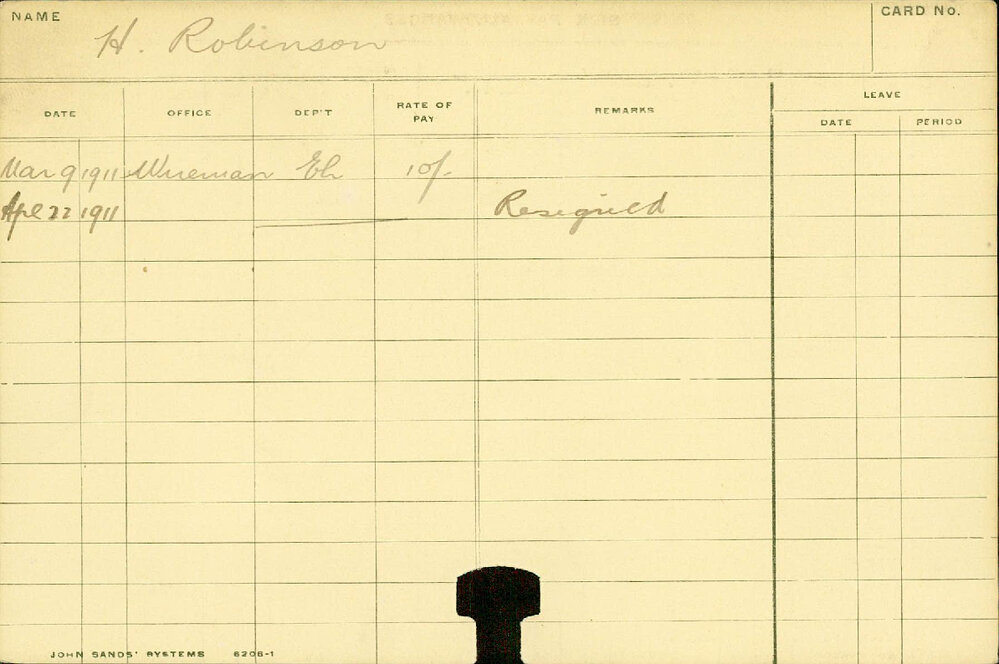 NAME H. Robinson CARD NO.
DATE OFFICE DEP'T RATE OF PAY REMARKS LEAVE
DATE PERIOD
Mar 9 1911 Wireman 10/-
Apl 22 1911 Resigned
JOHN SANDS' SYSTEMS 6206-1